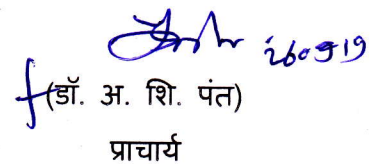 260919
(डॉ. अ. शि. पंत)
प्राचार्य